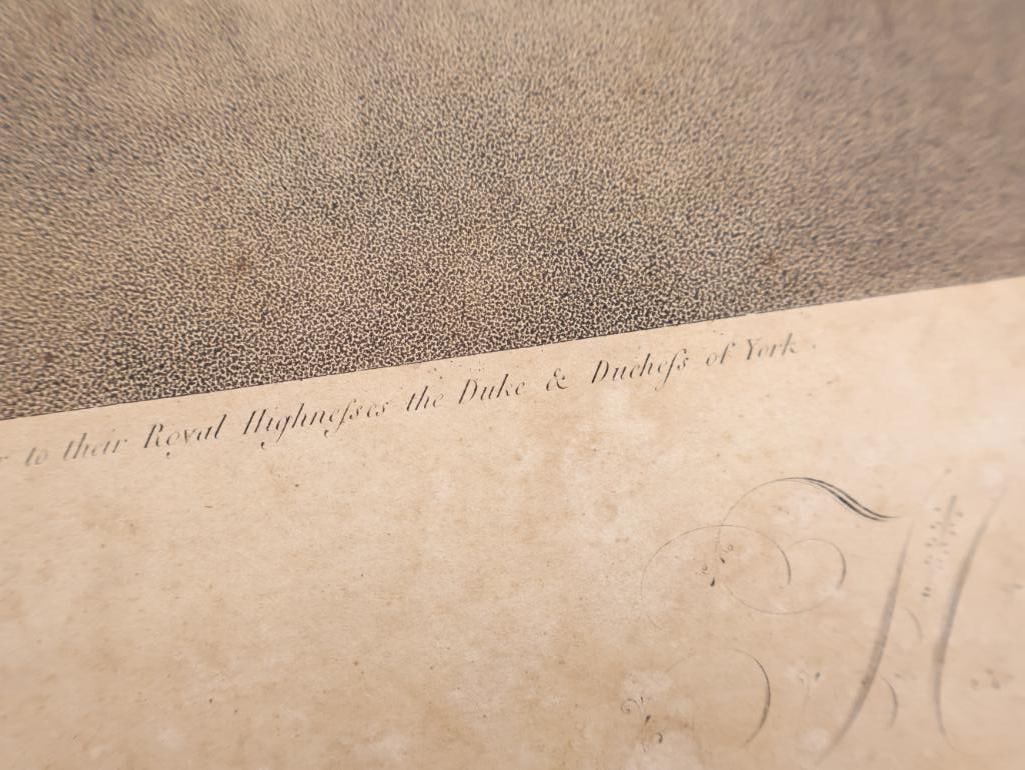 to their Royal Highneſses the Duke & Ducheſs of York.